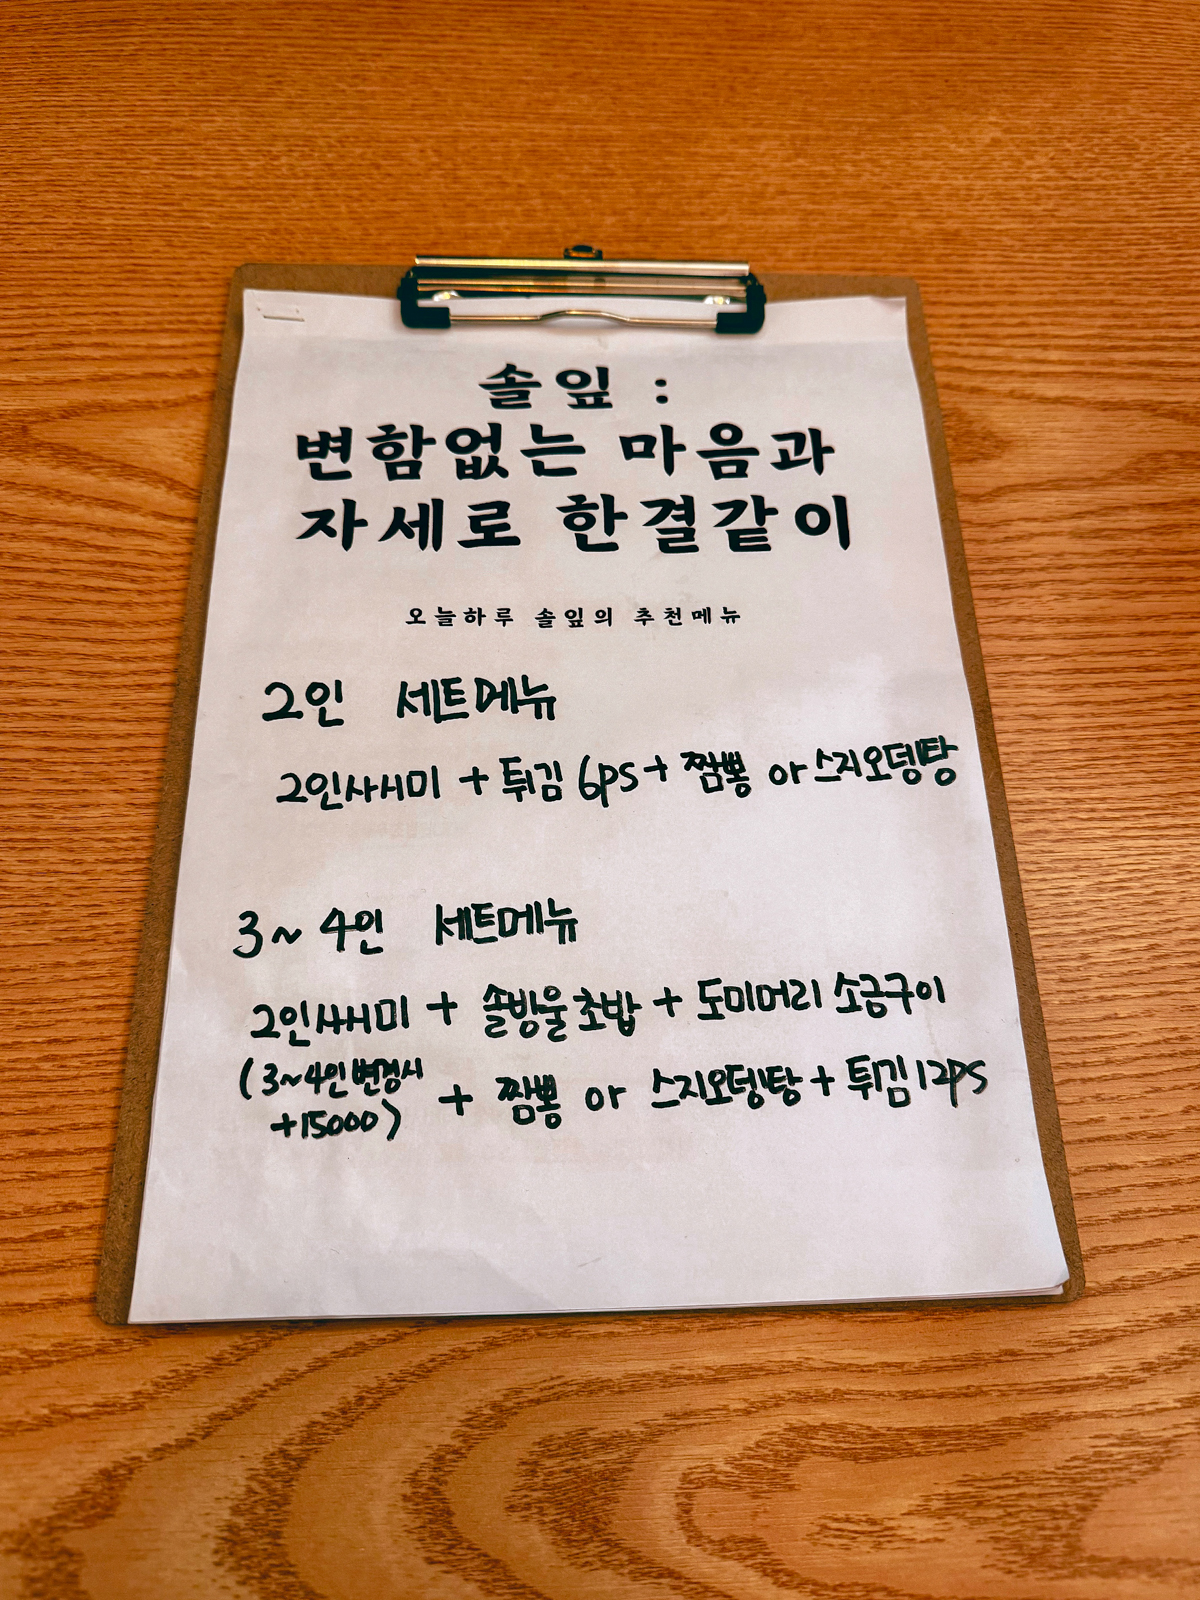 솔잎 :
변함없는 마음과
자세로 한결같이
오늘하루 솔잎의 추천메뉴
2인 세트메뉴
2인사시미 + 튀김 6ps + 짬뽕 or 스지오뎅탕
3~4인 세트메뉴
2인사시미 + 솔방울초밥 + 도미머리 소금구이
(3~4인 변경시
+15000)
+ 짬뽕 or 스지오뎅탕 + 튀김 12ps